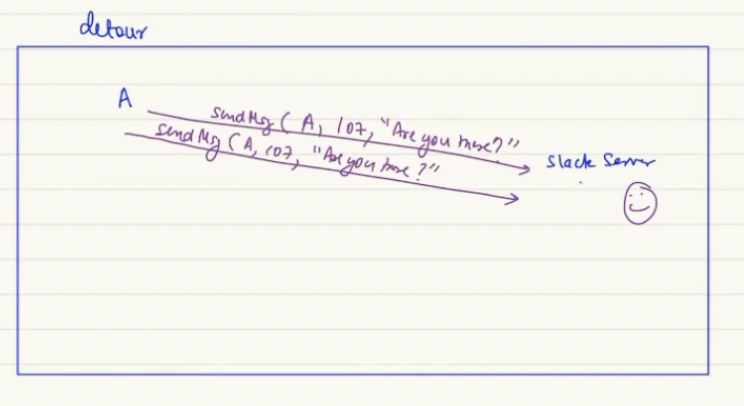 detour
A
sendMsg ( A, 107, "Are you there?"
sendMsg ( A, 107, "Are you there ?"
Slack Server